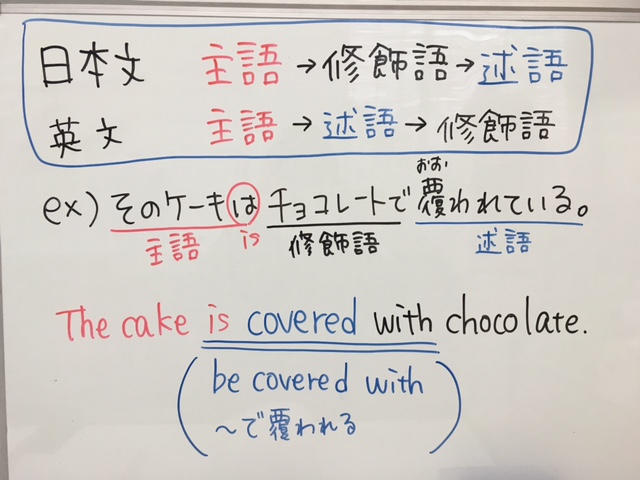 日本文 主語→修飾語→述語
英文 主語→述語→修飾語
おお
ex) そのケーキはチョコレートで覆われている。
主語 is 修飾語 述語
The cake is covered with chocolate.
be covered with
~で覆われる